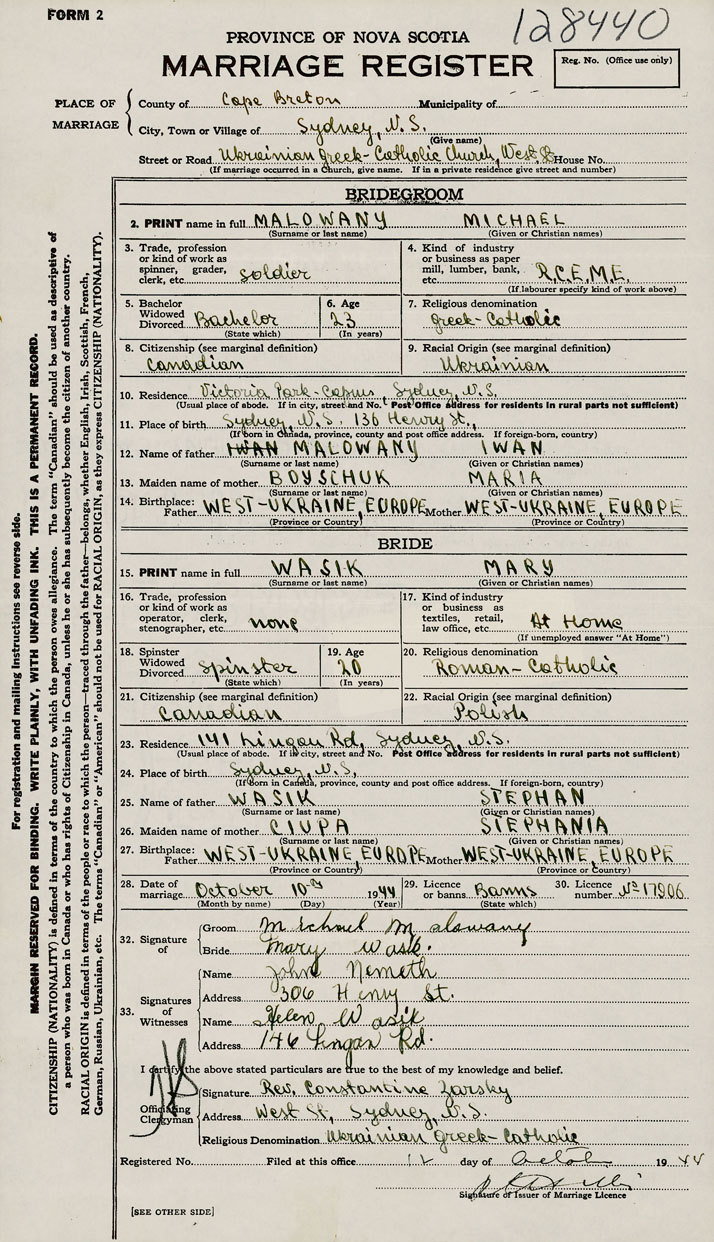 FORM 2
128440
PROVINCE OF NOVA SCOTIA
MARRIAGE REGISTER
Reg. No. (Office use only)
PLACE OF MARRIAGE
County of Cape Breton Municipality of
City, Town or Village of Sydney, N.S.
(Give name)
Street or Road Ukrainian Greek-Catholic Church, West St House No.
(If marriage occurred in a Church, give name. If in a private residence give street and number)
BRIDEGROOM
2. PRINT name in full MALOWANY MICHAEL
(Surname or last name) (Given or Christian names)
3. Trade, profession or kind of work as spinner, grader, clerk, etc. Soldier
4. Kind of industry or business as paper mill, lumber, bank, etc. R.C.E.M.E.
(If labourer specify kind of work above)
5. Bachelor Widowed Divorced Bachelor
(State which)
6. Age 23
(In years)
7. Religious denomination
Greek-Catholic
8. Citizenship (see marginal definition)
Canadian
9. Racial Origin (see marginal definition)
Ukrainian
10. Residence Victoria Park Sydney, N.S.
(Usual place of abode. If in city, street and No. Post Office address for residents in rural parts not sufficient)
11. Place of birth Sydney, N.S. 136 Henry St.,
(If born in Canada, province, county and post office address. If foreign-born, country)
12. Name of father IWAN MALOWANY IWAN
(Surname or last name) (Given or Christian names)
13. Maiden name of mother BOYSCHUK MARIA
(Surname or last name) (Given or Christian names)
14. Birthplace: Father WEST-UKRAINE, EUROPE Mother WEST-UKRAINE, EUROPE
(Province or Country) (Province or Country)
BRIDE
15. PRINT name in full WASIK MARY
(Surname or last name) (Given or Christian names)
16. Trade, profession or kind of work as operator, clerk, stenographer, etc. none
17. Kind of industry or business as textiles, retail, law office, etc. At Home
(If unemployed answer "At Home")
18. Spinster Widowed Divorced Spinster
(State which)
19. Age 20
(In years)
20. Religious denomination
Roman-Catholic
21. Citizenship (see marginal definition)
Canadian
22. Racial Origin (see marginal definition)
Polish
23. Residence 141 Lingan Rd, Sydney, N.S.
(Usual place of abode. If in city, street and No. Post Office address for residents in rural parts not sufficient)
24. Place of birth Sydney, N.S.
(If Born in Canada, province, county and post office address. If foreign-born, country)
25. Name of father WASIK STEPHAN
(Surname or last name) (Given or Christian names)
26. Maiden name of mother CIUPA STEPHANIA
(Surname or last name) (Given or Christian names)
27. Birthplace: Father WEST-UKRAINE, EUROPE Mother WEST-UKRAINE, EUROPE
(Province or Country) (Province or Country)
28. Date of marriage October 10 1944
(Month by name) (Day) (Year)
29. Licence or banns Banns
(State which)
30. Licence number No 17906
32. Signature of
Groom Michael Malowany
Bride Mary Wasik.
33. Signatures of Witnesses
Name John Nemeth
Address 306 Henry St.
Name Helen Wasik
Address 146 Lingan Rd.
I certify the above stated particulars are true to the best of my knowledge and belief.
Officiating Clergyman
Signature Rev. Constantine Zarsky
Address West St, Sydney, N.S.
Religious Denomination Ukrainian Greek-Catholic
Registered No. Filed at this office 12 day of October 1944
Signature of Issuer of Marriage Licence
[SEE OTHER SIDE]
For registration and mailing instructions see reverse side.
MARGIN RESERVED FOR BINDING. WRITE PLAINLY, WITH UNFADING INK. THIS IS A PERMANENT RECORD.
CITIZENSHIP (NATIONALITY) is defined in terms of the country to which the person owes allegiance. The term "Canadian" should be used as descriptive of
a person who was born in Canada or who has rights of Citizenship in Canada, unless he or she has subsequently become the citizen of another country.
RACIAL ORIGIN is defined in terms of the people or race to which the person—traced through the father—belongs, whether English, Irish, Scottish, French,
German, Russian, Ukrainian, etc. The terms "Canadian" or "American" should not be used for RACIAL ORIGIN, as they express CITIZENSHIP (NATIONALITY).